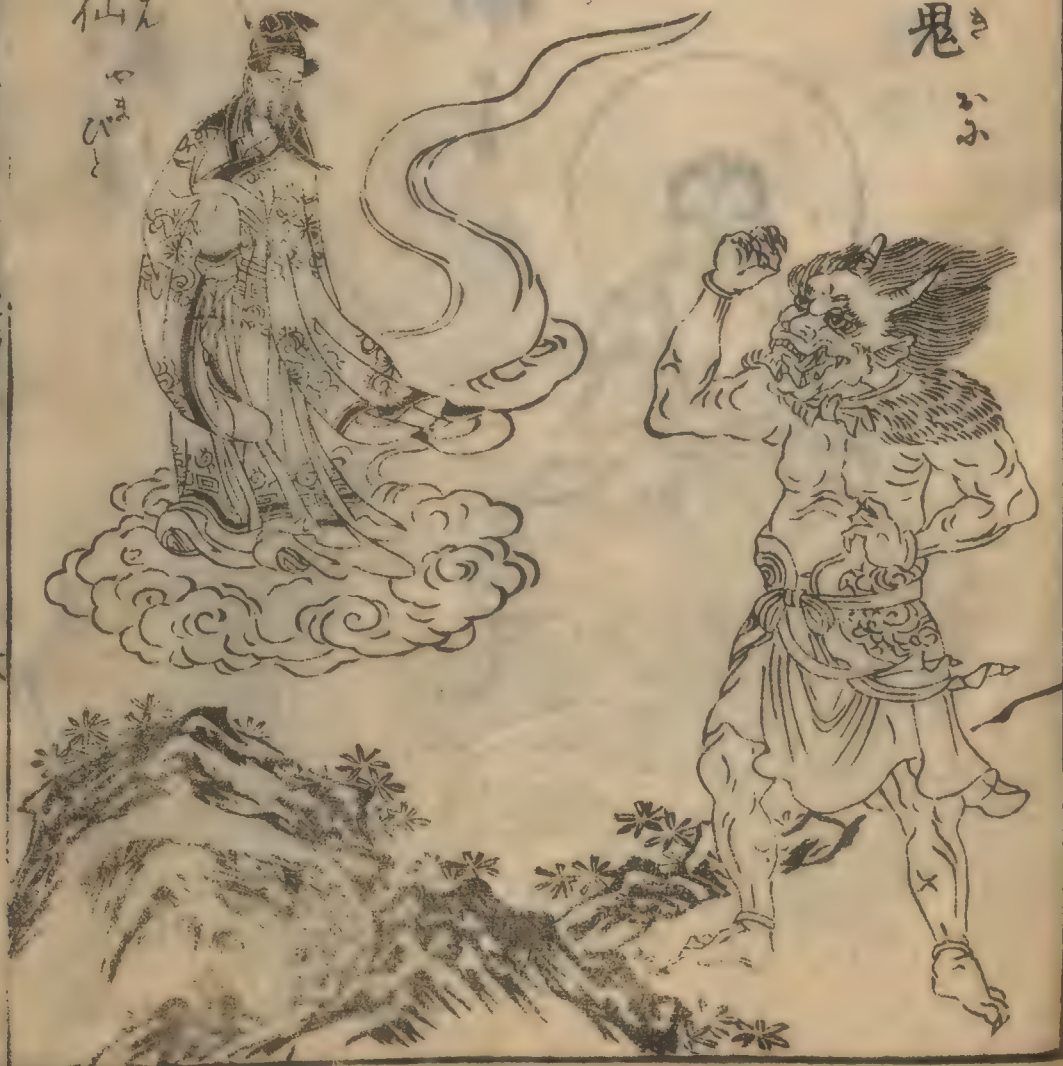 鬼
き
おに
仙
ん
やまびと